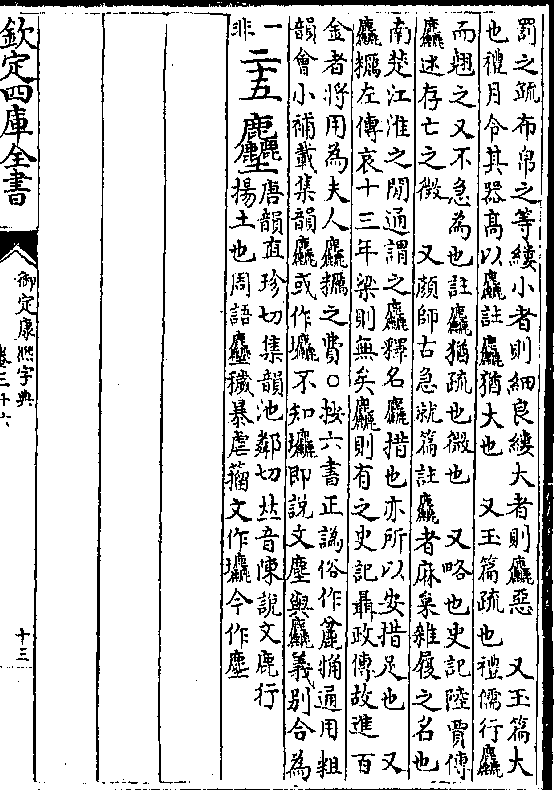 罰之疏布帛之等縷小者則細良縷大者則麤惡 又玉篇大
也禮月令其器髙以麤註麤猶大也 又玉篇疏也禮儒行麤
而翹之又不急為也註麤猶疏也微也 又略也史記陸賈傳
麤述存亡之徵 又顔師古急就篇註麤者麻枲雜履之名也
南楚江淮之間通謂之麤釋名麤措也亦所以安措足也 又
麤糲左傳哀十三年梁則無矣麤則有之史記聶政傳故進百
金者將用為夫人麤糲之費○按六書正譌俗作麄觕通用粗
韻會小補載集韻麤或作𪋻不知𪋻即說文塵與麤義别合為
一
非
二十五
𪋻
唐韻直珍切集韻池鄰切𠀤音陳說文鹿行
揚土也周語𪋻穢暴虐籀文作 今作塵
欽定四庫全書
御定康熙字典
卷三十六
十三